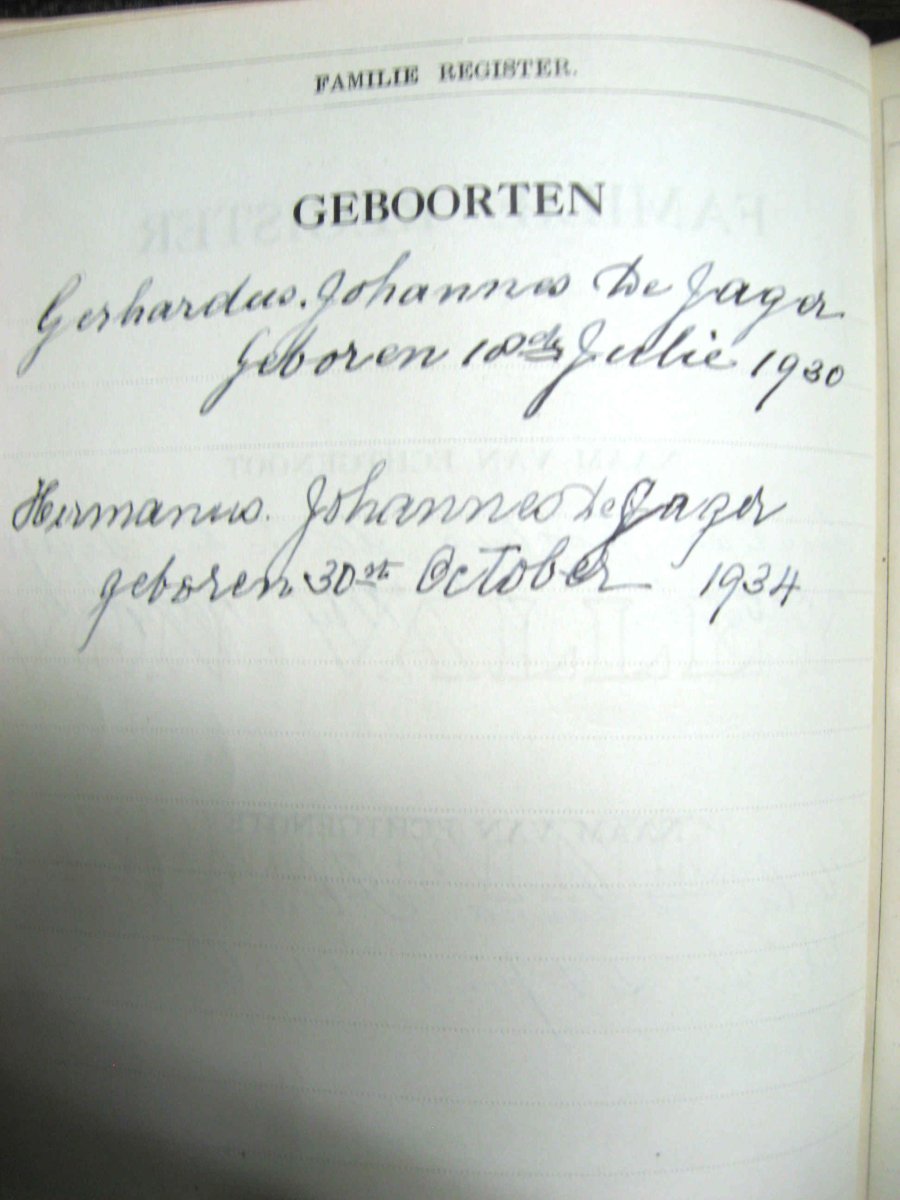 FAMILIE REGISTER.
GEBOORTEN
Gerhardus. Johannes De Jager
Geboren 18de Julie 1930
Hermanus. Johannes De Jager
geboren 30st October 1934